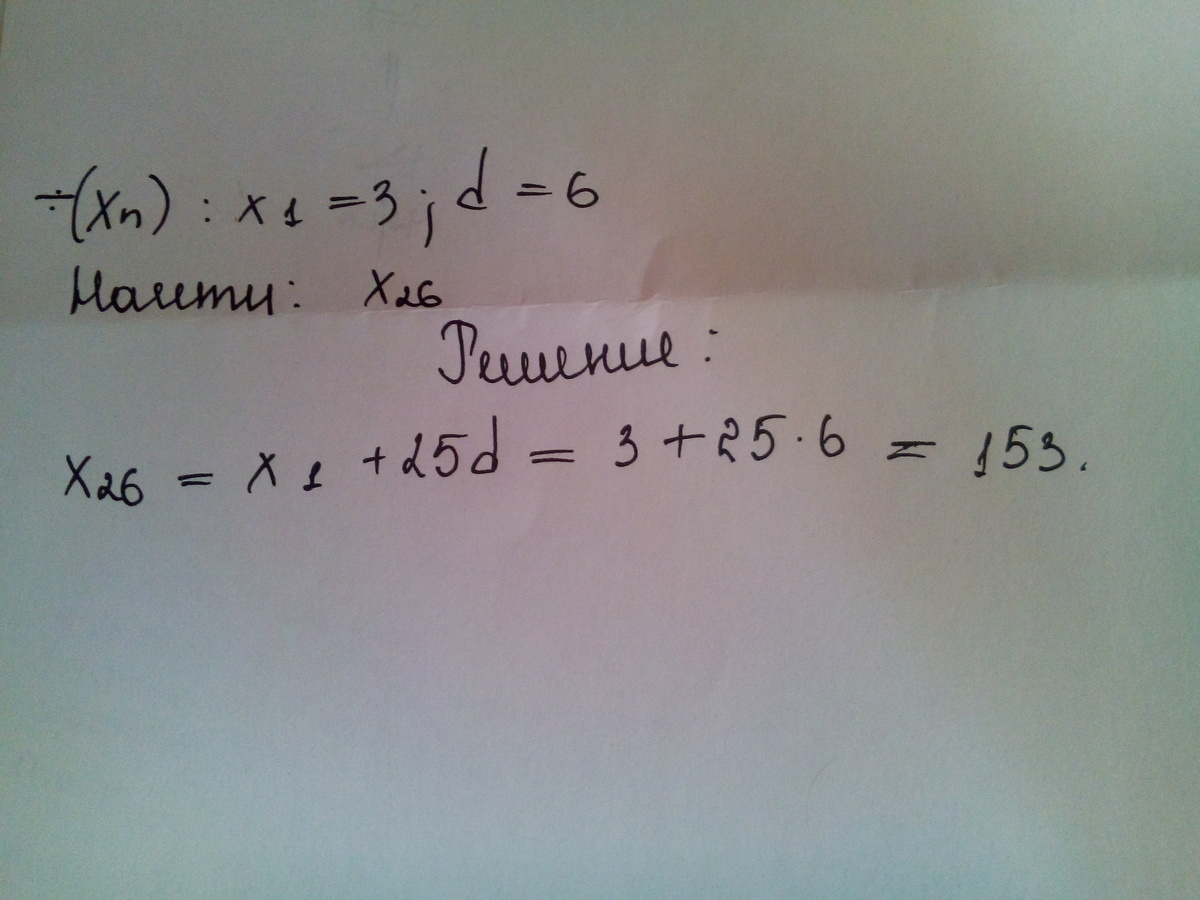 ÷(xn) : x1 = 3 ; d = 6
Найти: x26
Решение:
x26 = x1 + 25d = 3 + 25 · 6 = 153.